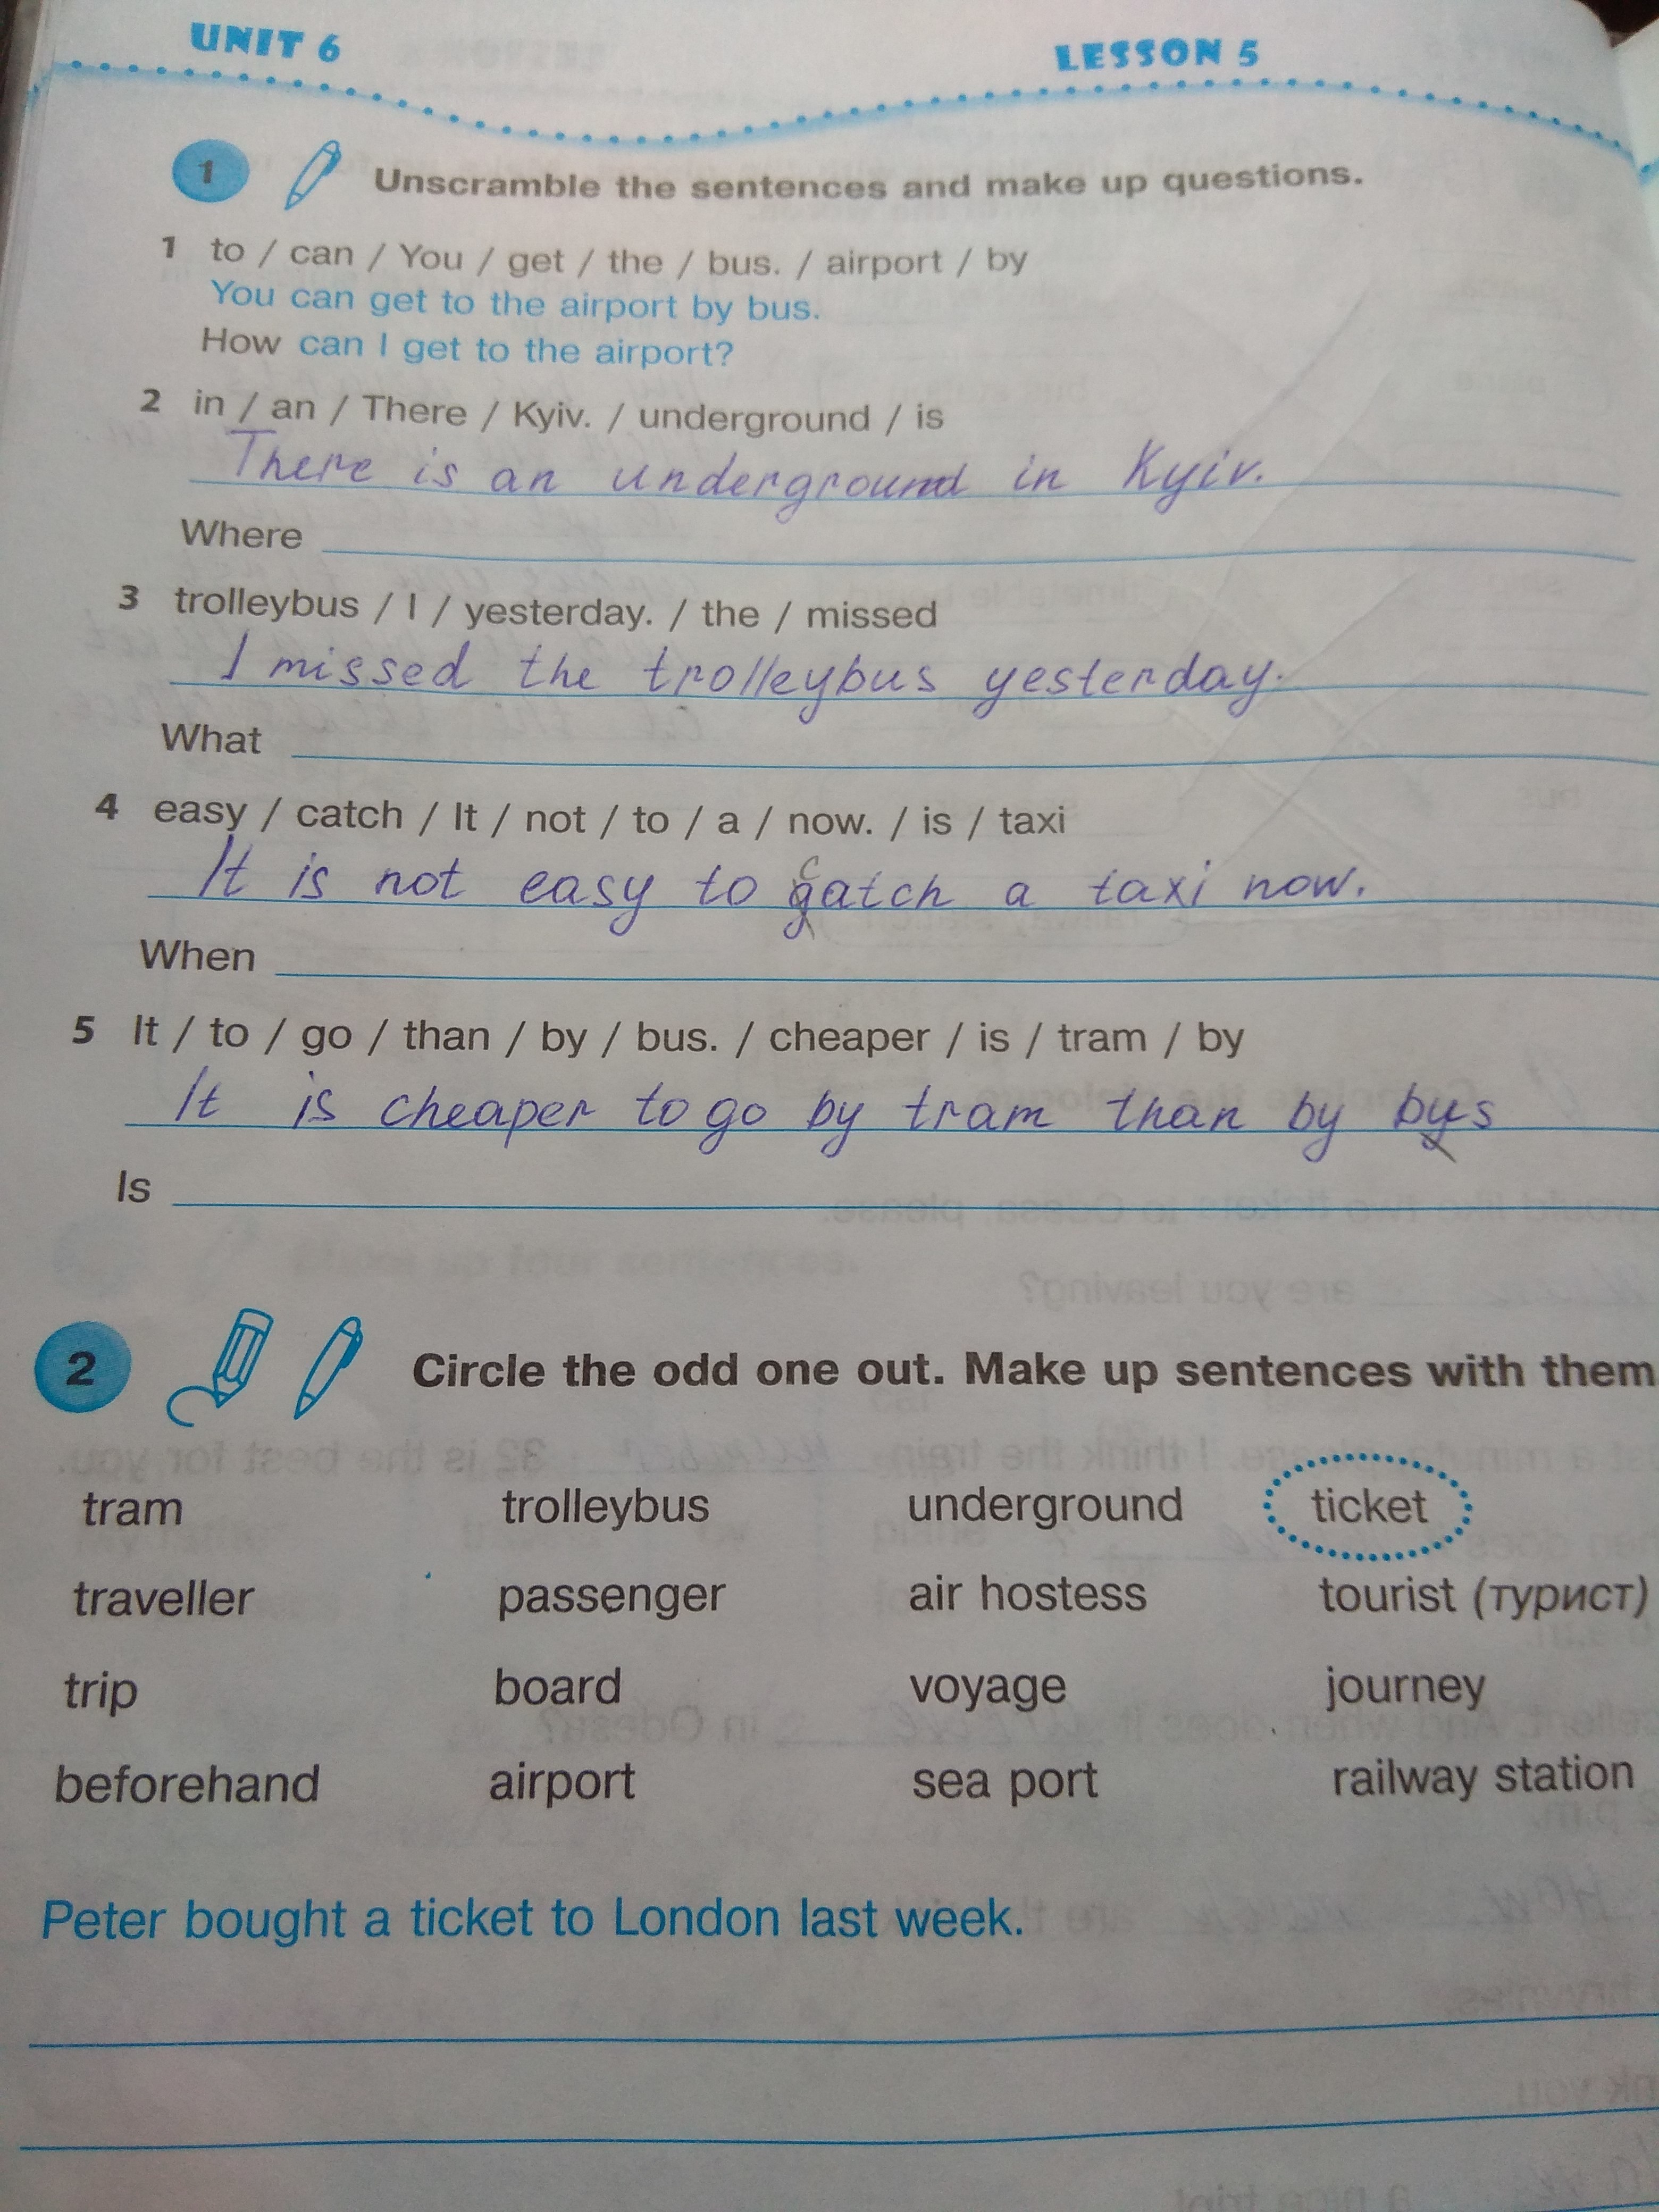 UNIT 6 LESSON 5
1 Unscramble the sentences and make up questions.
1 to / can / You / get / the / bus. / airport / by
You can get to the airport by bus.
How can I get to the airport?
2 in / an / There / Kyiv. / underground / is
There is an underground in Kyiv.
Where
3 trolleybus / I / yesterday. / the / missed
I missed the trolleybus yesterday.
What
4 easy / catch / It / not / to / a / now. / is / taxi
It is not easy to catch a taxi now.
When
5 It / to / go / than / by / bus. / cheaper / is / tram / by
It is cheaper to go by tram than by bus
Is
2 Circle the odd one out. Make up sentences with them
tram trolleybus underground ticket
traveller passenger air hostess tourist (турист)
trip board voyage journey
beforehand airport sea port railway station
Peter bought a ticket to London last week.